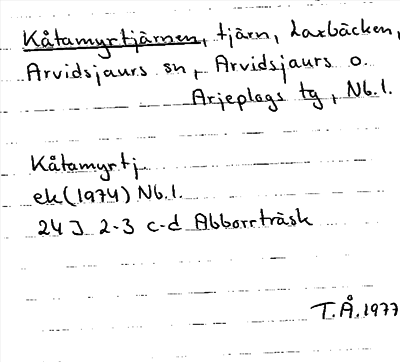 Kåtamyrtjärnen, tjärn, Laxbäcken,
Arvidsjaurs sn, Arvidsjaurs o.
Arjeplogs tg, Nb.l.
Kåtamyrtj
ek(1974) Nb.l.
24J 2-3 c-d Abborrträsk
T.Å.1977